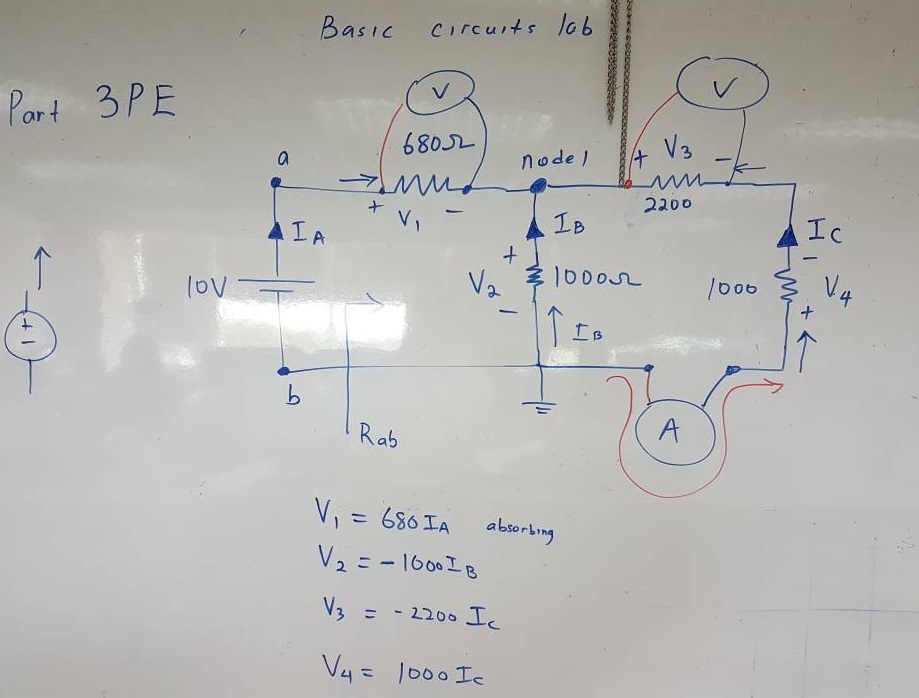 Basic circuits lab
Part 3PE
V
V
680Ω
a
node1
+ V3 −
+ V1 −
2200
IA
IB
IC
10V
+
V2
−
1000Ω
1000
−
V4
+
+
−
IB
b
Rab
A
V1 = 680 IA absorbing
V2 = - 1000 IB
V3 = - 2200 Ic
V4 = 1000 Ic